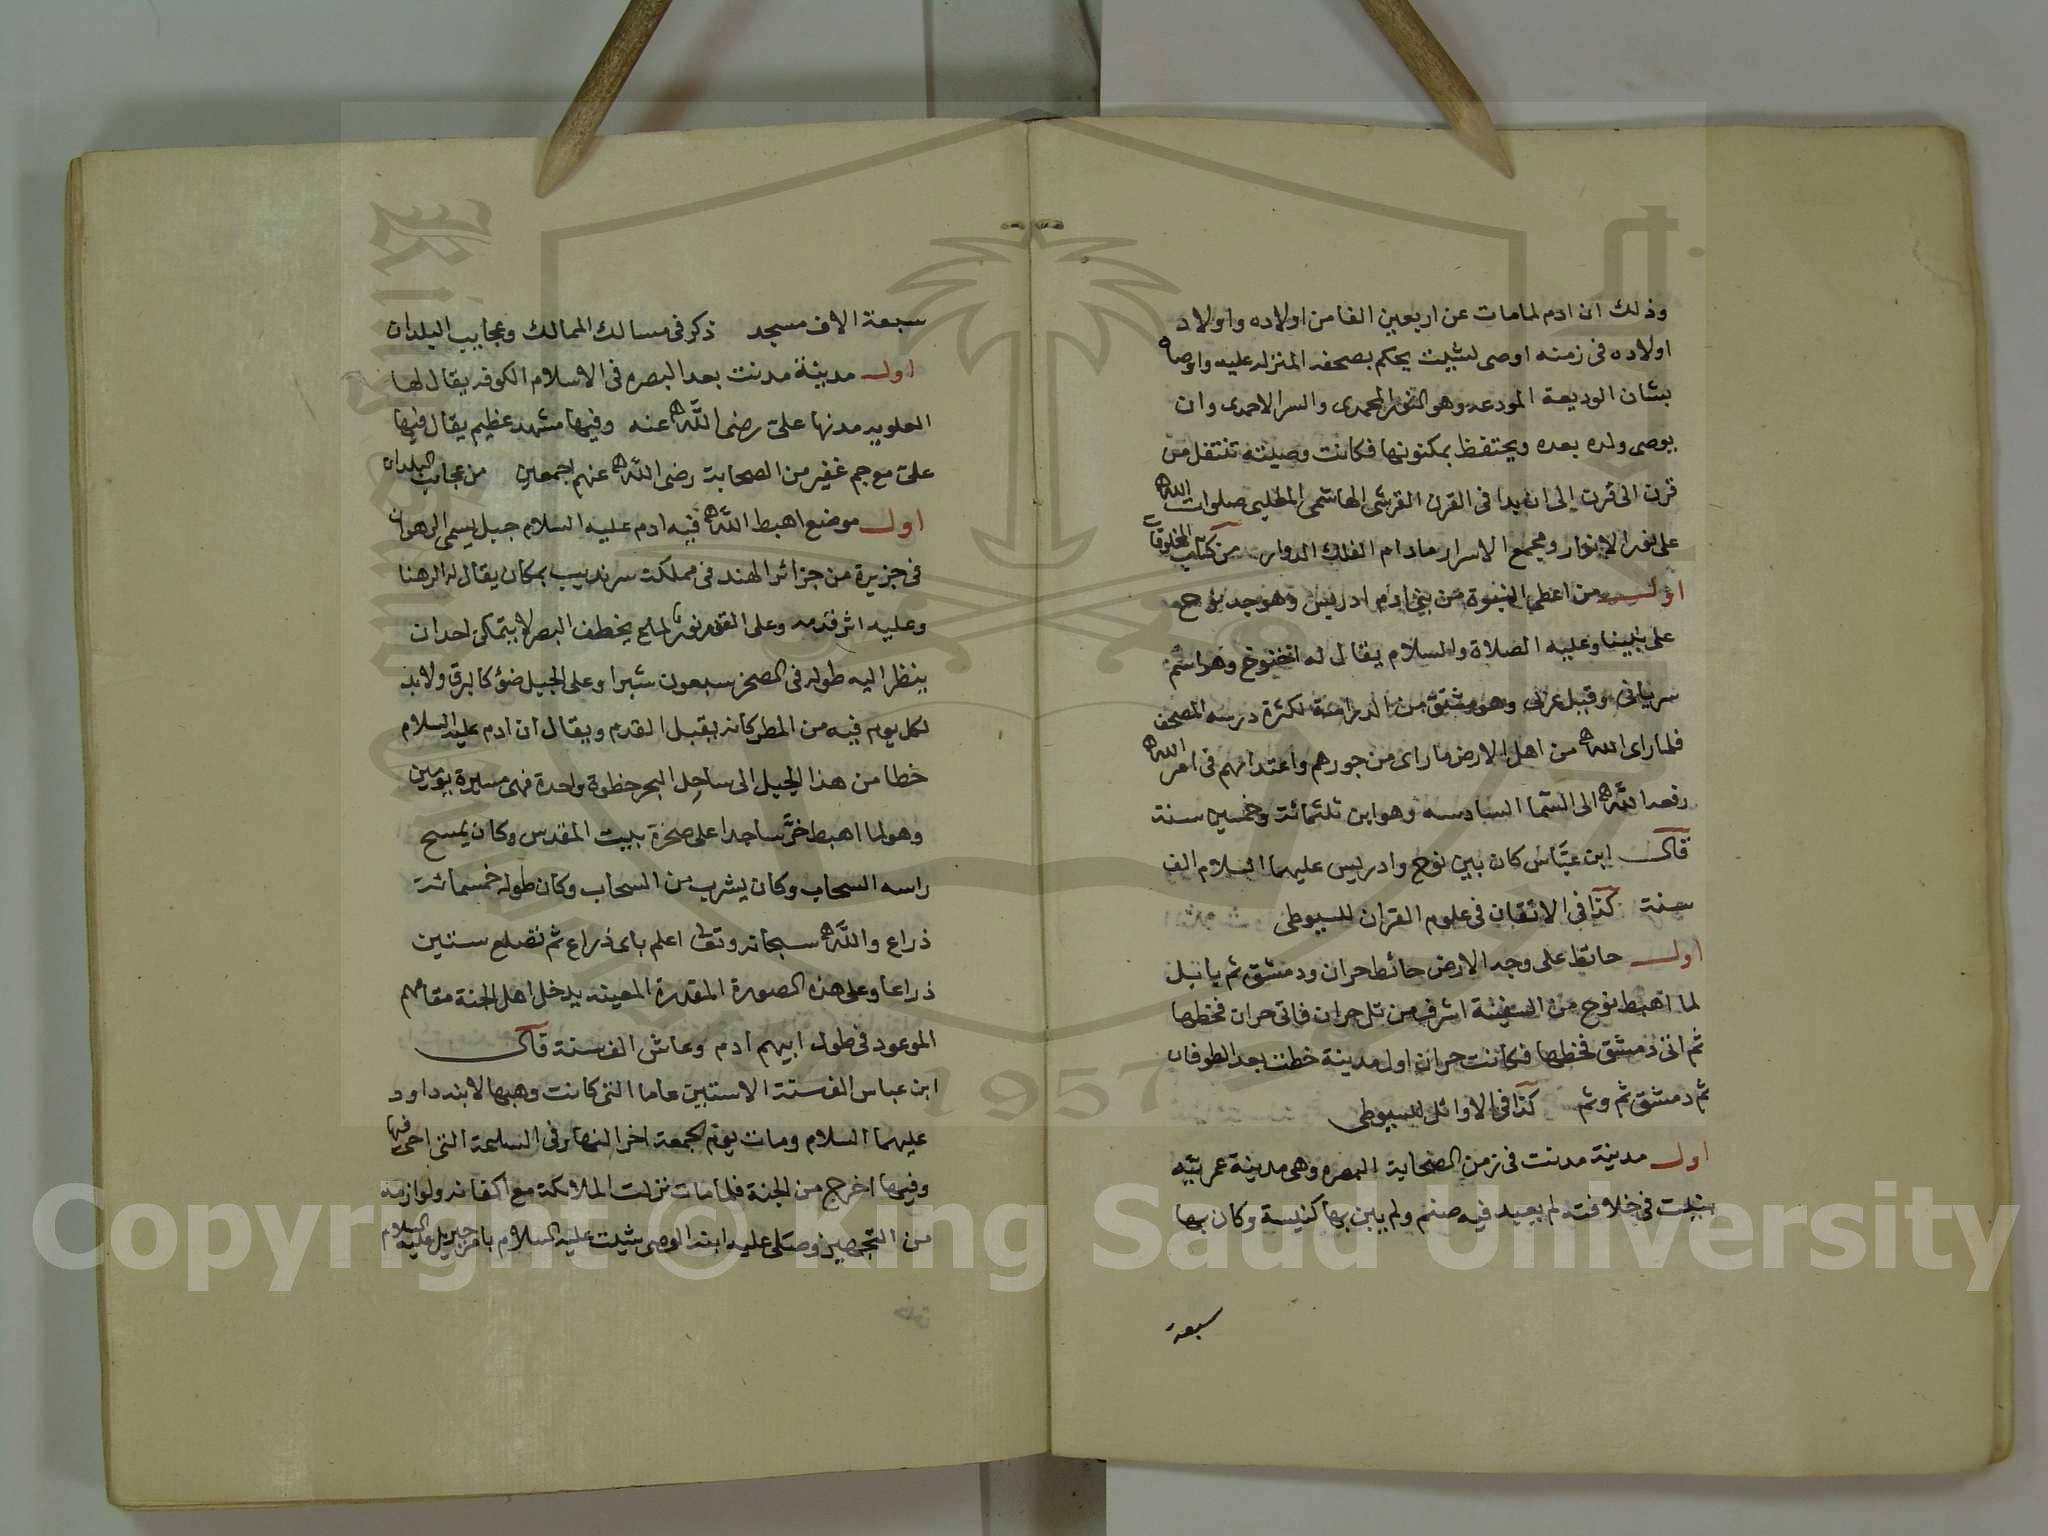 وذلك ان ادم لما مات عن اربعين الفا من اولاده واولاد
اولاده فى زمنه اوصى لشيت يحكم بصحفه المنزله عليه واوصاه
بشان الوديعة المودعه وهو النور المحمدى والسر الاحمدى وان
يوصى ولده بعده ويحتفظ بمكنونها فكانت وصيته تنتقل من
قرن الى قرن الى ان بدا فى القرن القرشى الهاشمى صلوات الله
على نور الانوار ومجمع الاسرار ما دام الفلك الدوار من كتاب المخلوقات
اول من اعطى النبوة من بنى ادم ادريس وهو جد نوح
على نبينا وعليه الصلاة والسلام يقال له اخنوخ وهو اسم
سريانى وقيل عربى وهو مشتق من الدراسة لكثرة درسه الصحف
فلما راى الله من اهل الارض ما راى من جورهم واعتدائهم فى امر الله
رفعه الله الى السما السادسه وهو ابن ثلثمائة وخمسين سنة
قال ابن عباس كان بين نوح وادريس عليهما السلام الف
سنة كذا فى الاتقان فى علوم القران للسيوطى
اول حائط على وجه الارض حائط حران ودمشق ثم بابل
لما اهبط نوح من السفينة اشرف من تل حران فاتى حران فخطها
ثم اتى دمشق فخطها فكانت حران اول مدينة خطت بعد الطوفان
ثم دمشق ثم وثم كذا فى الاوائل للسيوطى
اول مدينة مدنت فى زمن الصحابة البصره وهى مدينة عمريه
بنيت فى خلافته لم يعبد فيه صنم ولم يبن بها كنيسة وكان بها
سبعة
سبعة الاف مسجد ذكر فى مسالك الممالك وعجايب البلدان
اول مدينة مدنت بعد البصره فى الاسلام الكوفه يقال لها
العلويه مدنها على رضى الله عنه وفيها مشهد عظيم يقال فيها
على مع جم غفير من الصحابة رضى الله عنهم اجمعين من عجايب البلدان
اول موضع اهبط الله فيه ادم عليه السلام جبل يسمى الرهوان
فى جزيرة من جزائر الهند فى مملكة سرنديب بمكان يقال له الرهنا
وعليه اثر قدمه وعلى القدم نور لامع يخطف البصر لا يتمكن احد ان
ينظر اليه طوله فى الصخر سبعون شبرا وعلى الجبل ضوء كالبرق ولا بد
لكل يوم فيه من المطر كانه يقبل القدم ويقال ان ادم عليه السلام
خطا من هذا الجبل الى ساحل البحر خطوة واحدة فهى مسيرة يومين
وهو لما اهبط خر ساجدا على صخرة بيت المقدس وكان يمسح
راسه السحاب وكان يشرب من السحاب وكان طوله خمسمائة
ذراع والله سبحانه وتعا اعلم باى ذراع ثم تضلع ستين
ذراعا وعلى هذه الصورة المقدرة المعينه يدخل اهل الجنة مقامهم
الموعود فى طول ابيهم ادم وعاش الف سنة قال
ابن عباس الف سنة الا ستين عاما التى كانت وهبها لابنه داود
عليهما السلام ومات يوم الجمعة اخر النهار فى الساعة التى احى فيها
وفيها اخرج من الجنة فلما مات نزلت الملائكة مع اكفانه ولوازمه
من التجهيز وصلى عليه ابنه الوصى شيت عليه السلام بامر جبريل عليه السلام
Copyright © King Saud University
1957